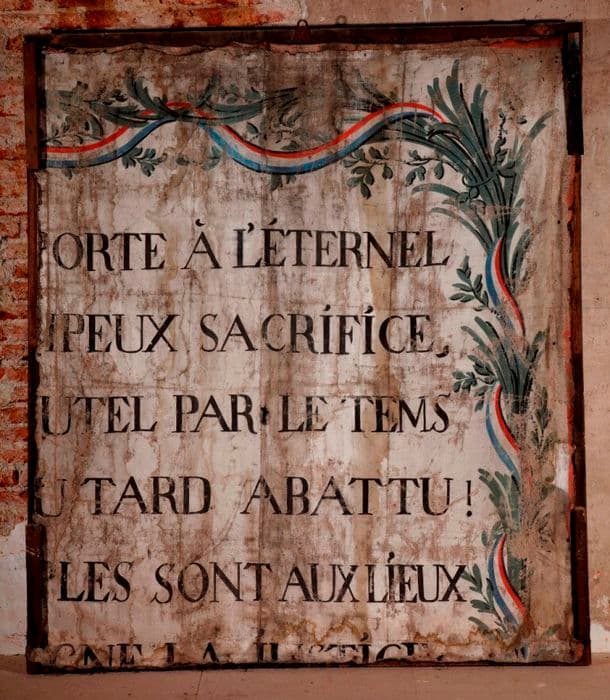 ORTE À L'ÉTERNEL
PEUX SACRIFICE,
UTEL PAR LE TEMS
U TARD ABATTU!
LES SONT AUX LIEUX
GNE LA JUSTICE